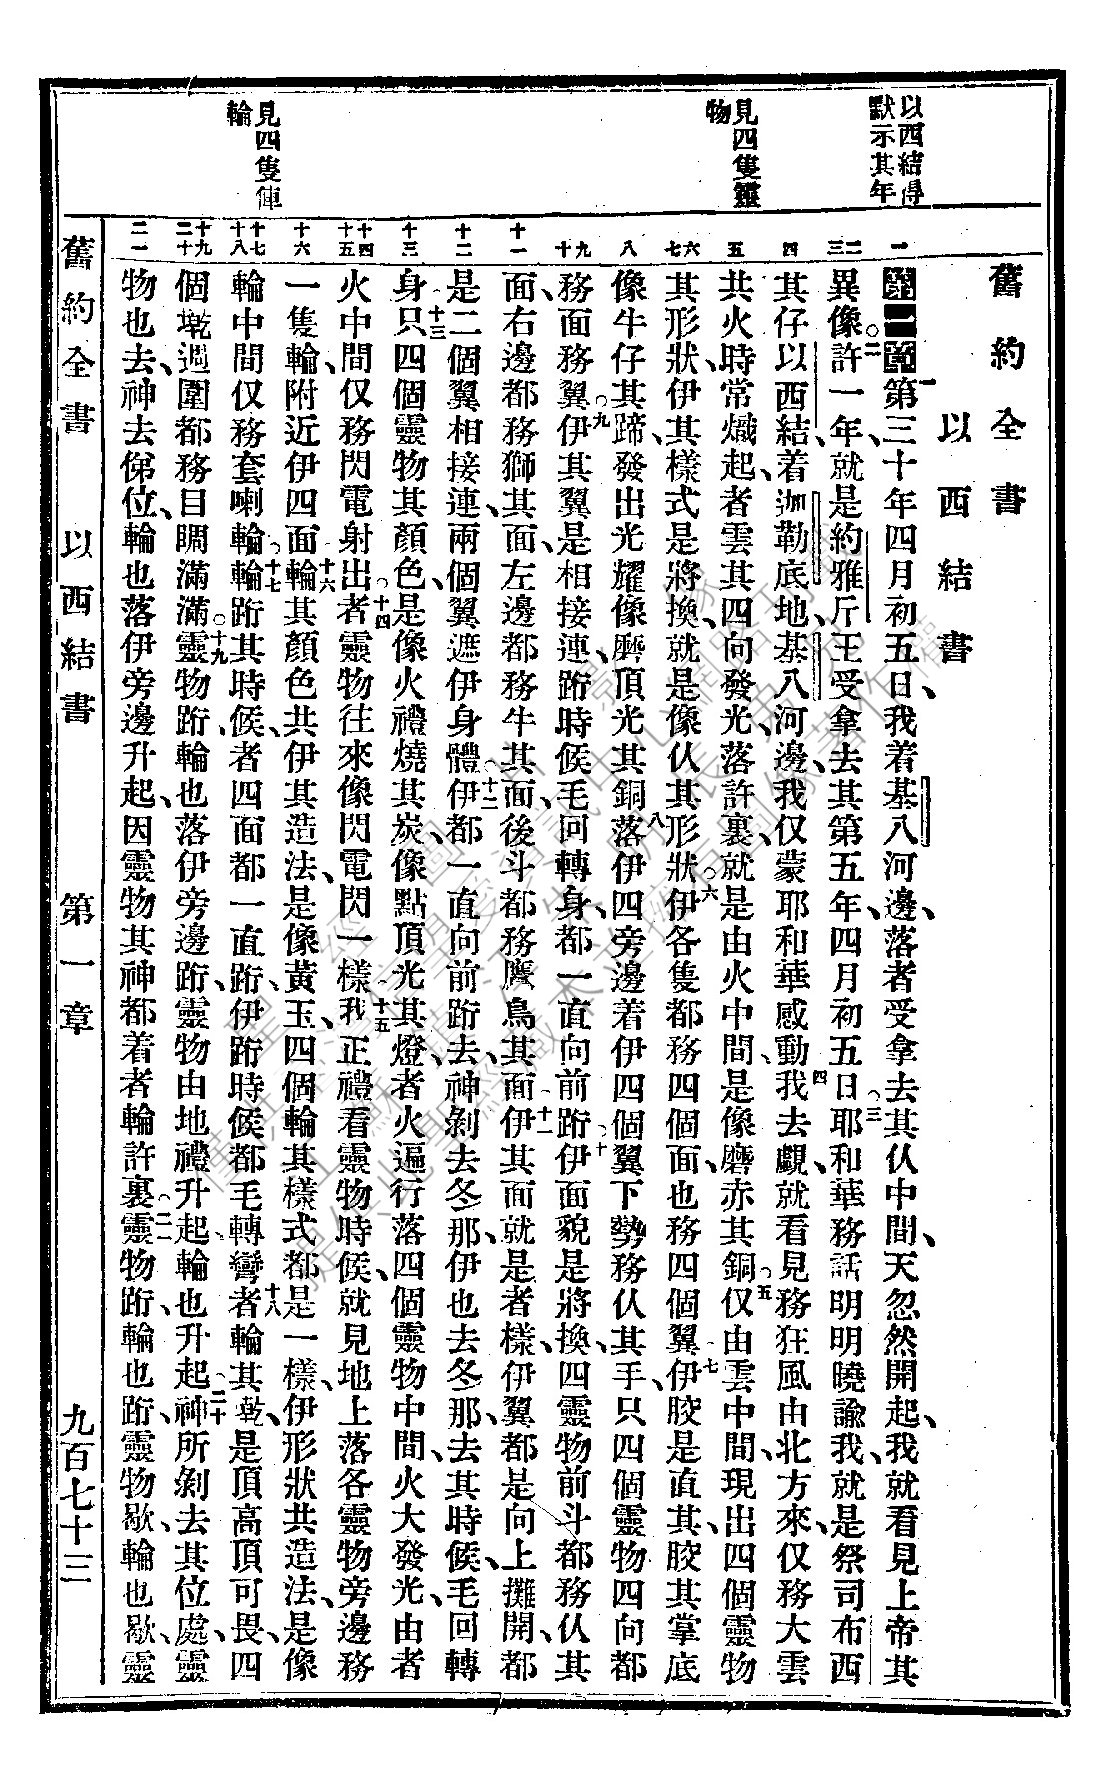 舊約全書
以西結書
第一章 一第三十年四月初五日、我着基八河邊、落者受拿去其仈中間、天忽然開起、我就看見上帝其
異像。二許一年、就是約雅斤王受拿去其第五年、四月初五日。三耶和華務話明明曉諭我、就是祭司布西
其仔以西結、着迦勒底地基八河邊、我仅蒙耶和華感動。四我去覷、就看見務狂風由北方來、仅務大雲
共火時常熾起、者雲其四向發光、落許裏、就是由火中間、是像磨赤其銅。五仅由雲中間、現出四個靈物
其形狀、伊其樣式是將換、就是像仈其形狀。六伊各隻都務四個面、也務四個翼。七伊胶是直其、胶其掌底
像牛仔其蹄、發出光耀像磨頂光其銅。八落伊四旁邊着伊四個翼下勢務仈其手、只四個靈物四向都
務面務翼。九伊其翼是相接連、跀時候毛回轉身、都一直向前跀。十伊面貌是將換、四靈物前斗都務仈其
面、右邊都務獅其面、左邊都務牛其面、後斗都務鷹鳥其面。十一伊其面就是者樣、伊翼都是向上攤開、都
是二個翼相接連、兩個翼遮伊身體。十二伊都一直向前跀去、神剝去冬那、伊也去冬那、去其時候、毛回轉
身。十三只四個靈物其顏色、是像火禮燒其炭、像點頂光其燈、者火遍行落四個靈物中間、火大發光、由者
火中間仅務閃電射出。十四者靈物往來像閃電閃一樣。十五我正禮看靈物時候、就見地上落各靈物旁邊務
一隻輪、附近伊四面。十六輪其顏色共伊其造法、是像黃玉、四個輪其樣式都是一樣、伊形狀共造法、是像
輪中間仅務套喇輪。十七輪跀其時候、者四面都一直跀、伊跀時候都毛轉彎。十八者輪其墘、是頂高頂可畏、四
個墘週圍都務目睭滿滿。十九靈物跀、輪也落伊旁邊跀、靈物由地禮升起、輪也升起。二十神所剝去其位處、靈
物也去、神去俤位、輪也落伊旁邊升起、因靈物其神都着者輪許裏。二一靈物跀、輪也跀、靈物歇、輪也歇、靈
以西結得
默示其年
見四隻靈
物
見四隻俥
輪
一
二
三
四
五
六
七
八
九
十
十一
十二
十三
十四
十五
十六
十七
十八
十九
二十
二一
舊約全書 以西結書 第一章 九百七十三